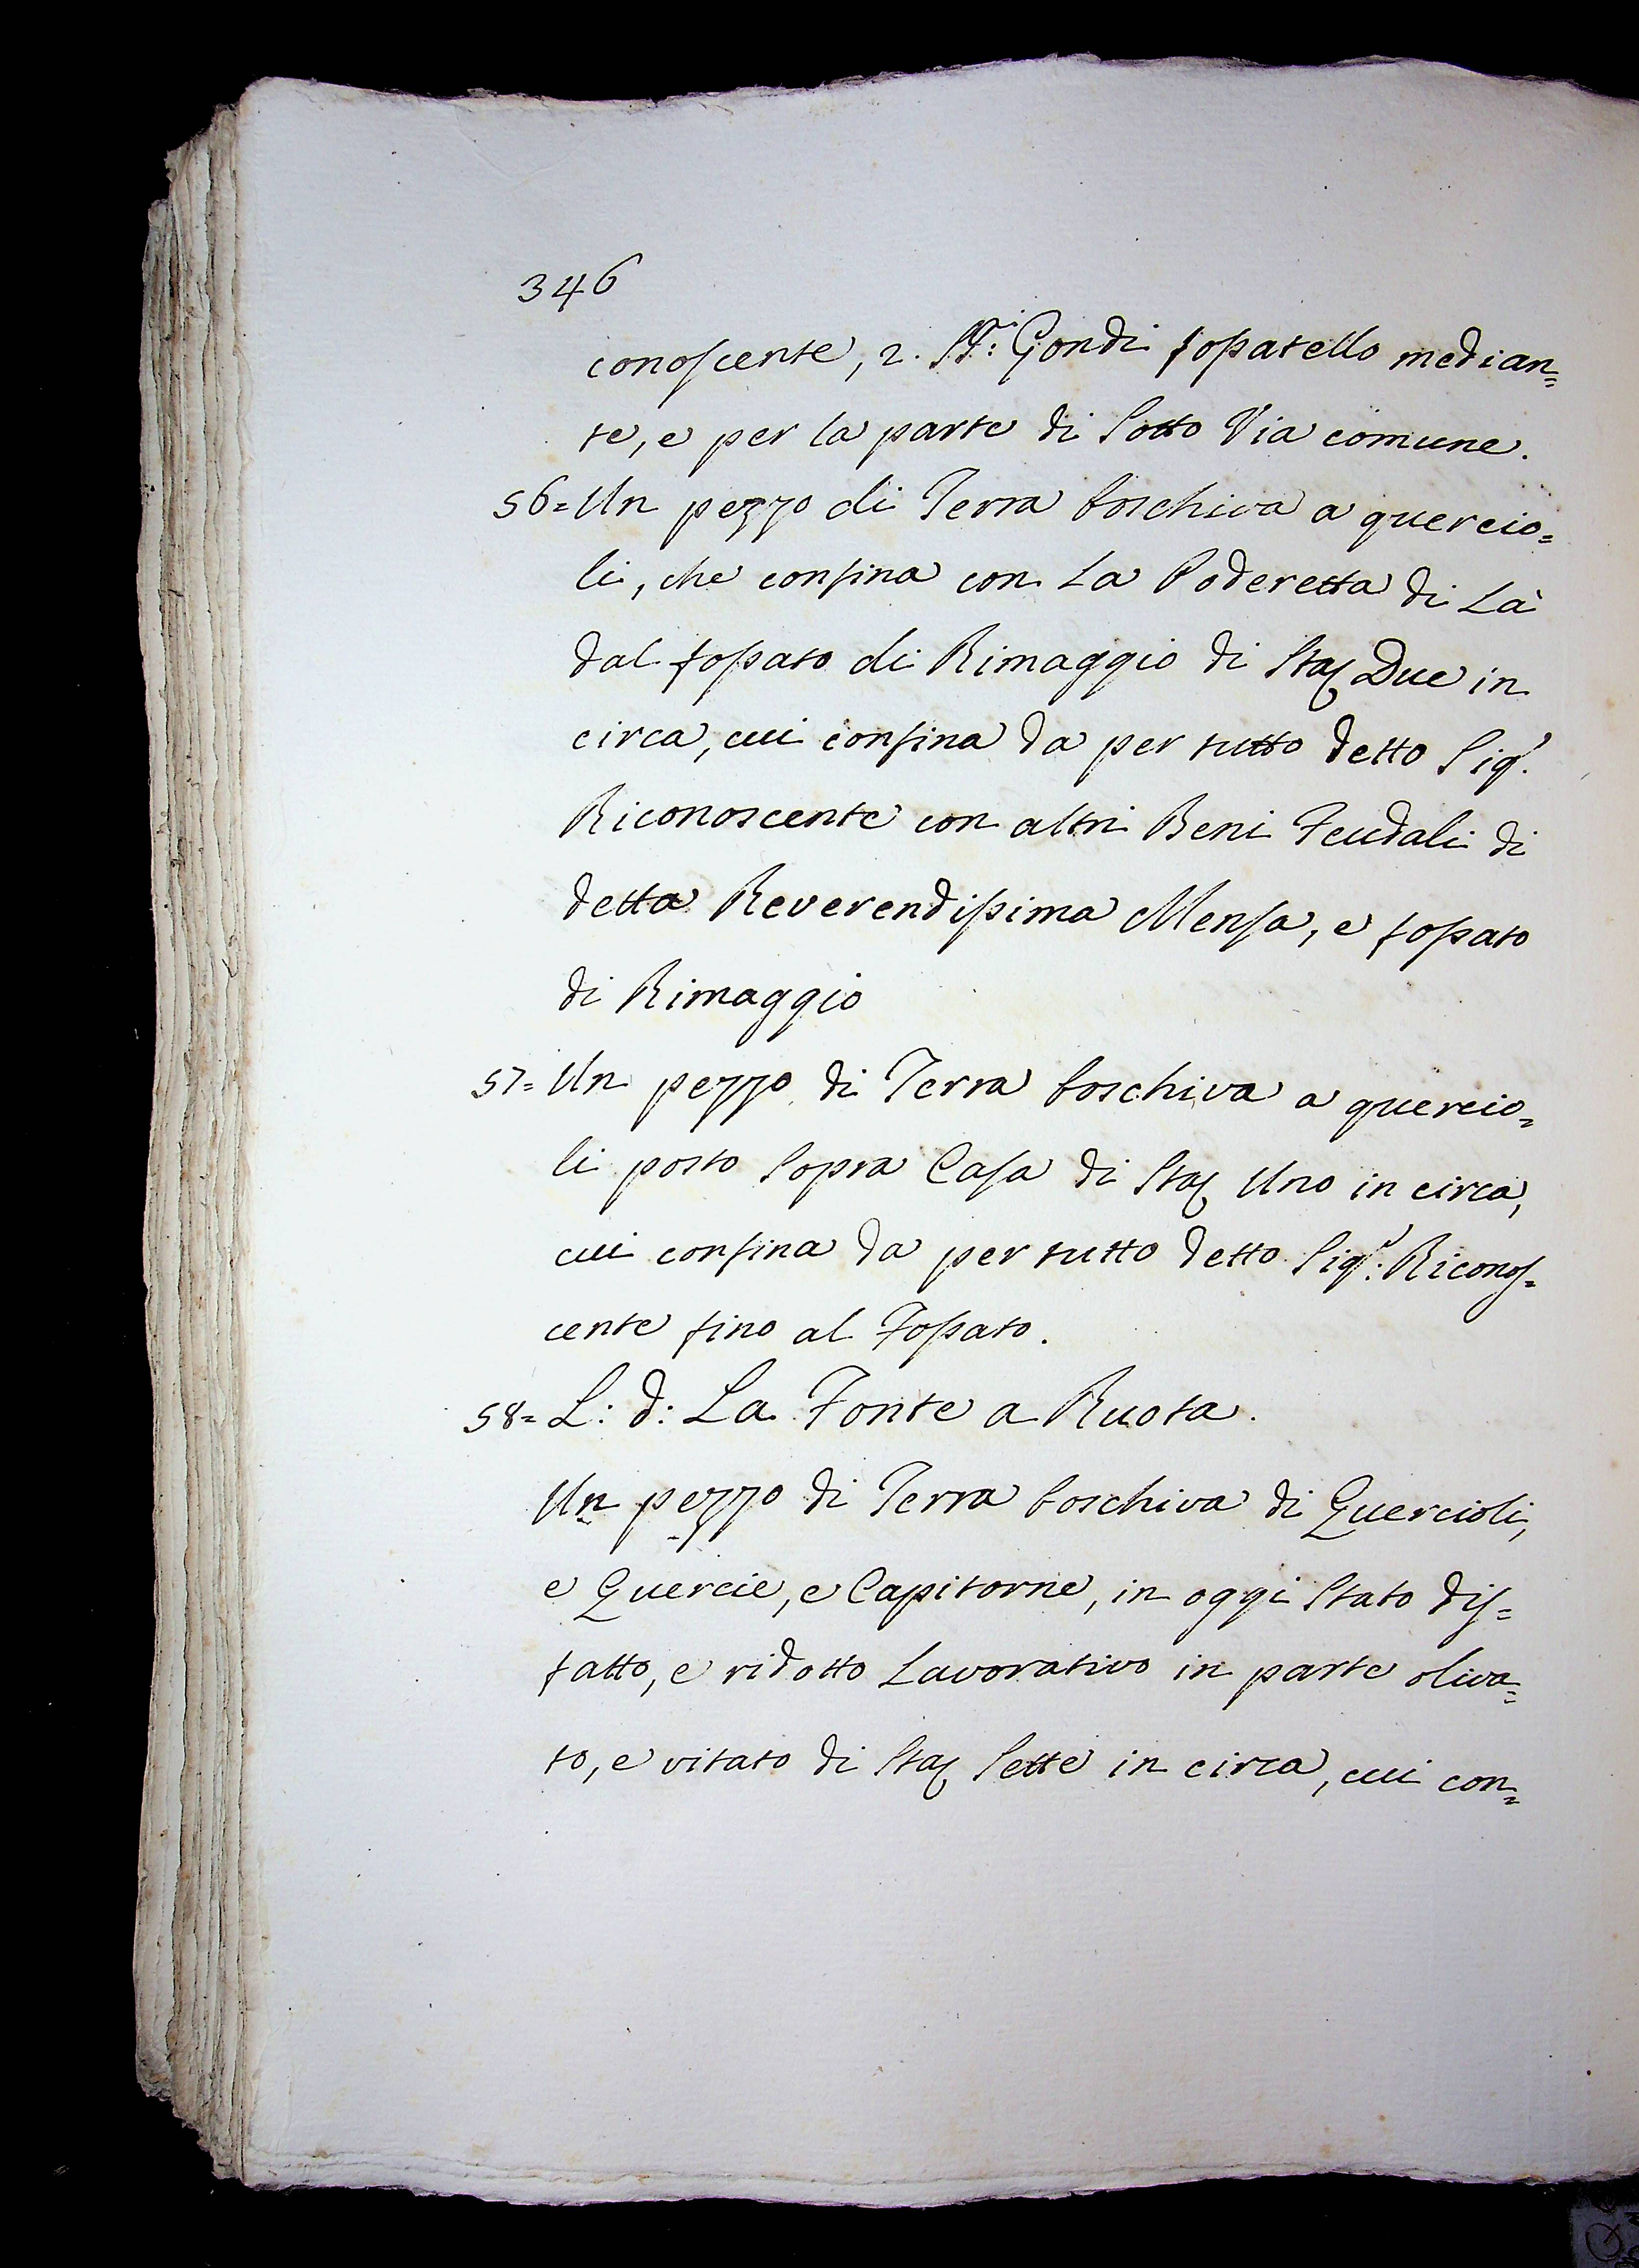 346
conoscente, 2. SS.ri Gondi fossatello median=
te, e per la parte di Sotto Via comune.
56= Un pezzo di Terra boschiva a quercio=
li, che confina con La Poderetta di Là
dal fossato di Rimaggio di Sta: Due in
circa, cui confina da per tutto detto Sig.r
Riconoscente con altri Beni Feudali di
detta Reverendissima Mensa, e fossato
di Rimaggio
57= Un pezzo di Terra boschiva a quercio=
li posto Sopra Casa di Sta: Uno in circa,
cui confina da per tutto detto Sig.r: Riconos=
cente fino al Fossato.
58= L: d: La Fonte a Ruota.
Un pezzo di Terra boschiva di Quercioli,
e Quercie, e Capitorne, in oggi Stato dis=
fatto, e ridotto Lavorativo in parte oliva=
to, e vitato di Sta: Sette in circa, cui con=